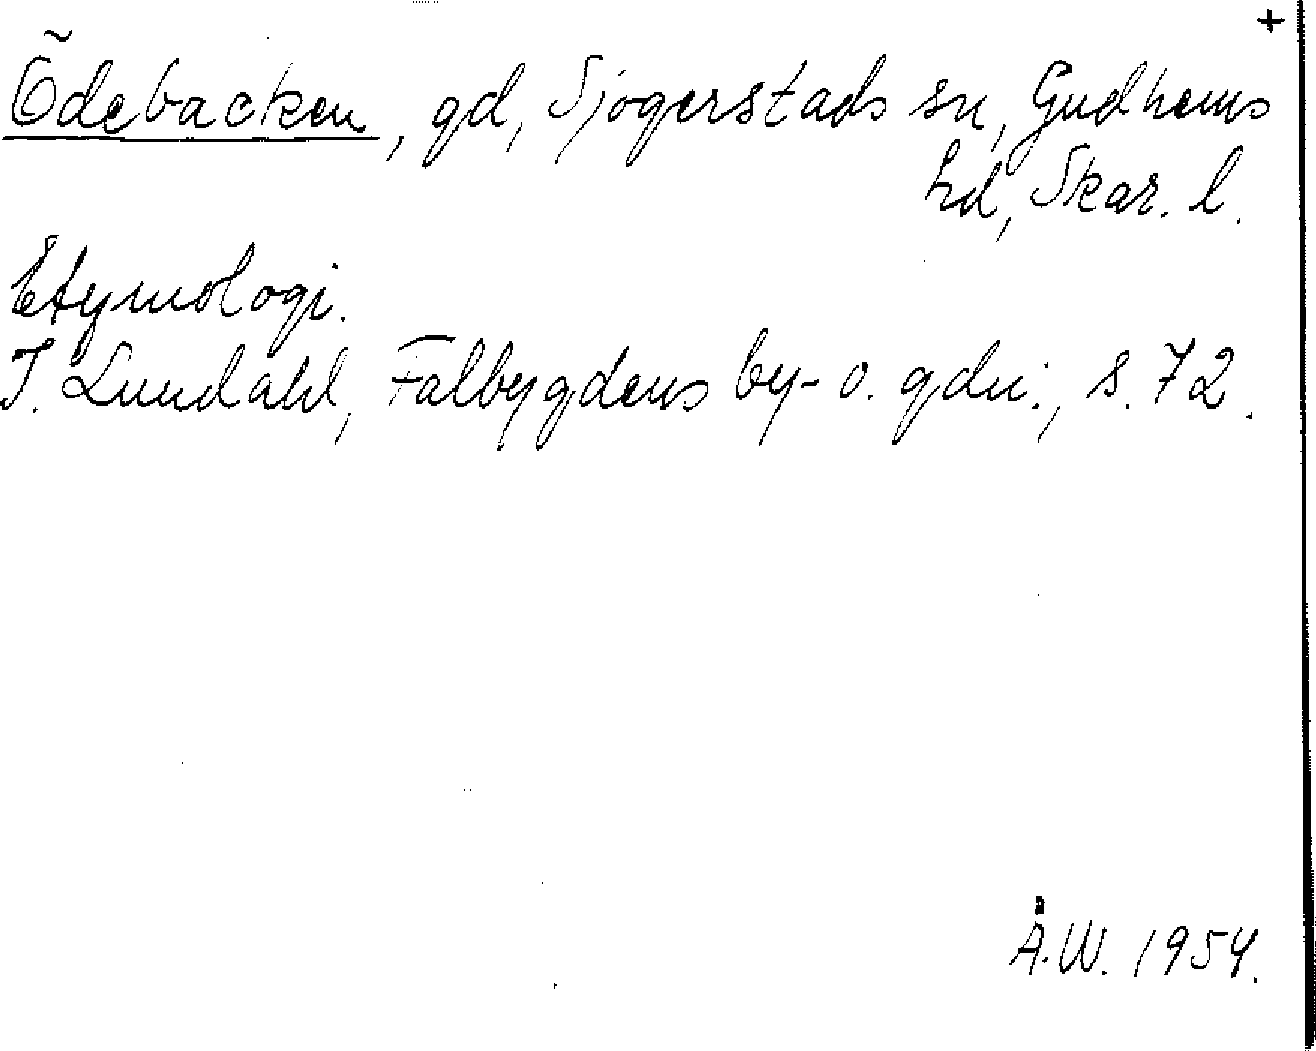 +
Ödebacken, gd, Sjogerstads sn, Gudhems
hd, Skar. l.
Etymologi.
I. Lundahl, Falbygdens by- o. gdn:, s. 72.
Å.W. 1954.